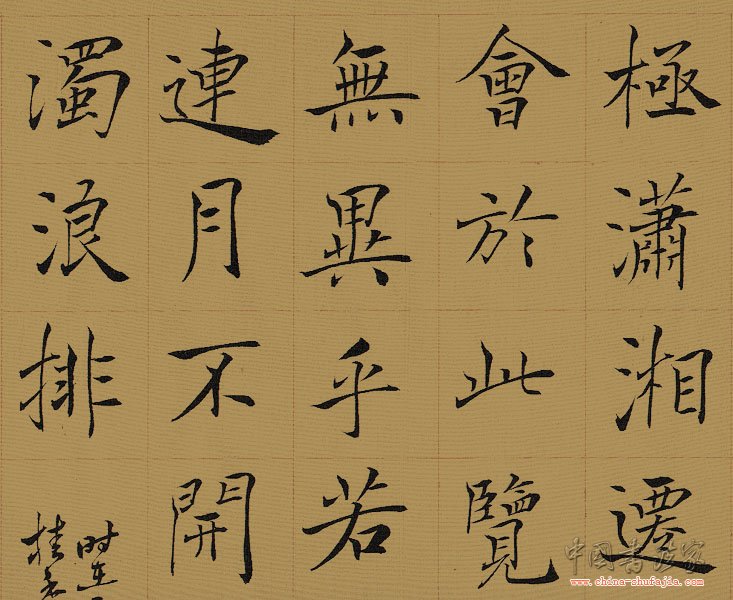 極瀟湘遷
會於此覽
無異乎若
連月不開
濁浪排
时在
桂
中国书法家
www.china-shufajia.com